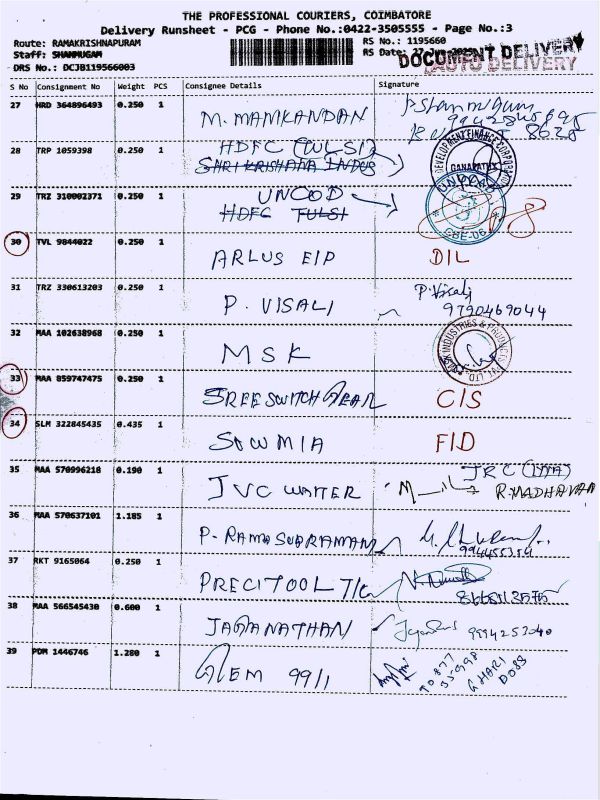 THE PROFESSIONAL COURIERS, COIMBATORE
Delivery Runsheet - PCG - Phone No.:0422-3505555 - Page No.:3
Route: RAMAKRISHNAPURAM
Staff: SHANMUGAM
DRS No.: DCJB119566003
RS No.: 1195660
RS Date: 27 Jun 2025
DOCUMENT DELIVERY
AUTO DELIVERY
S No Consignment No Weight PCS Consignee Details Signature
27 HRD 364896493 0.250 1 M. MANIKANDAN
28 TRP 1059398 0.250 1 HDFC (TULSI)
SHRI KRISHANA INDUS
DEVELOPMENT FINANCE CORPORATION
GANAPATHY
29 TRZ 310002371 0.250 1 UNCOD
HDFC TULSI
CBE-06
30 TVL 9844022 0.250 1 ARLUS EIP DIL
31 TRZ 330613203 0.250 1 P. VISALI P. Visali
9790469044
32 MAA 102638968 0.250 1 MSK
INDUSTRIES &
33 MAA 859747475 0.250 1 SREE SWITCH GEAR C/S
34 SLM 322845435 0.435 1 SOWMIA FID
35 MAA 570996218 0.190 1 JVC WATTER
R. MADHAVAN
36 MAA 570637101 1.185 1 P. RAMA SUBRAMANI
37 RKT 9165064 0.250 1 PRECITOOL T/C
38 MAA 566545430 0.600 1 JAGANATHAN 9994253040
39 PDM 1446746 1.280 1 GEM 99/1
G HARI
DOSS